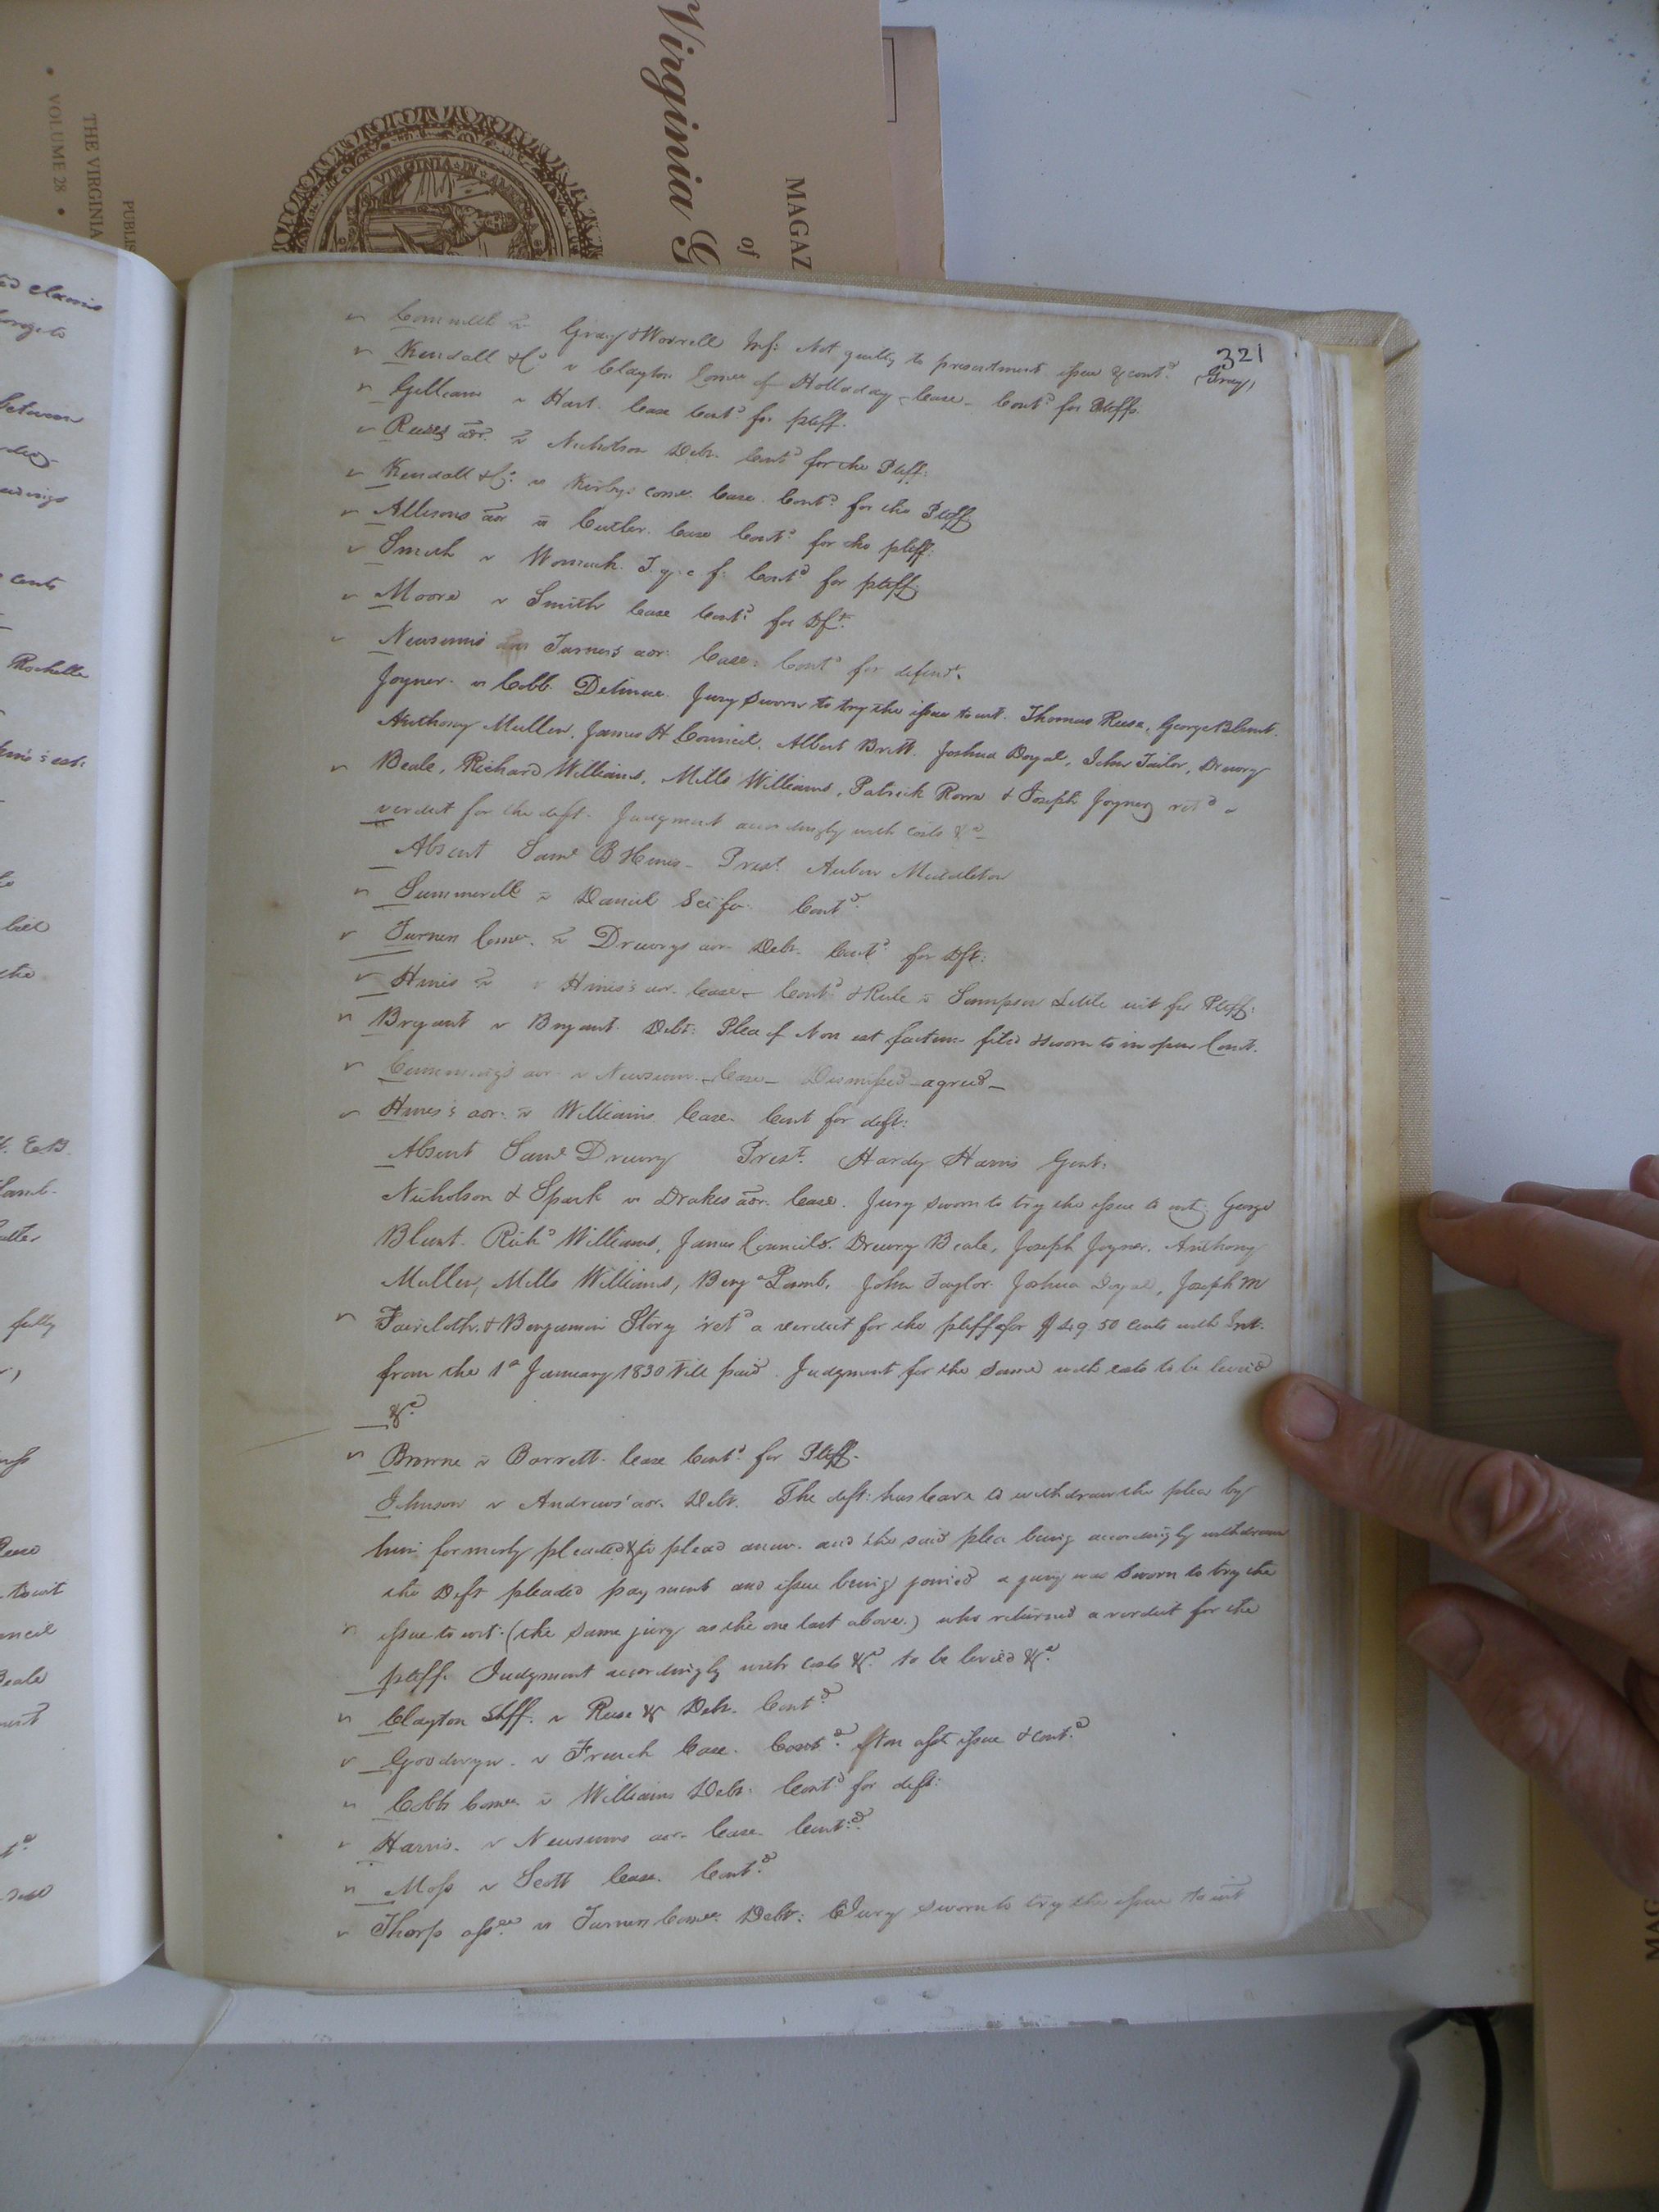 Virginia G
of
MAGAZ
THE VIRGINIA
VOLUME 28
PUBLIS
VIRGINIA IN
321
Commwlth vs Gray & Worrell Inf: Not guilty to presentment issue & contd (Gray)
Kendall & Co v Clayton Comee of Holladay Case Contd for Pltffs.
Gilliam v Hart. Case Contd for pltff.
Reese's aor. v Nicholson Debt. Contd for the Pltff.
Kendall & Co. vs Kirbys comee. Case. Contd for the Pltff
Allisons aor v Cutler. Case Contd for the pltff.
Smith v Womack. T. q. c. f. Contd for pltff.
Moore v Smith Case Contd for Dft.
Newsoms aor Turners aor. Case. Contd for defendt.
Joyner vs Cobb. Detinue. Jury sworn to try the issue to wit. Thomas Reese, George Blunt.
Anthony Mullen, James H Council, Albert Britt. Joshua Doyal, John Tailor, Drewry
Beale, Richard Williams, Mills Williams, Patrick Rorre & Joseph Joyner retd a
verdict for the deft. Judgment accordingly with costs &c
Absent Saml B Hines – Prest. Middleton
Summerell v Daniel Sci fa. Contd.
Turner Comee. v Drewrys aor Debt. Contd for Dft:
Hines v Hines's aor. Case – Contd & Rule v Sampson Little wit for Pltff:
Bryant v Bryant. Debt: Plea of Non est factum filed & sworn to in open Court.
Cummings aor v Newsum. Case – Dismissed – agreed –
Hines's aor. v Williams Case. Cont for deft:
Absent Saml Drewry Prest. Hardy Harris Gent:
Nicholson & Spark vs Drakes aor. Case. Jury sworn to try the issue to wit: George
Blunt. Richd Williams, James Council. Drewry Beale, Joseph Joyner, Anthony
Mullen, Mills Williams, Benja Lamb, John Taylor. Joshua Doyal, Joseph M
Faircloth. & Benjamin Story retd a verdict for the pltff for $ 50 cents with Int.
from the 1st January 1830 till paid. Judgment for the same with costs to be levied
&c.
Browne v Barrett. Case Contd for Pltff.
Johnson v Andrews' aor. Debt. The deft: has leave to withdraw the plea by
him formerly pleaded & to plead anew. and the said plea being accordingly withdrawn
the Deft pleaded payment and issue being joined a jury was sworn to try the
issue to wit: (the same jury as the one last above.) who returned a verdict for the
pltff. Judgment accordingly with costs &c. to be levied &c.
Clayton Shff. v Reese &c Debt. Contd
Goodwyn. v French Case. Contd. Non asst issue & contd
Cobb Comee v Williams Debt. Contd for deft:
Harris. v Newsums aor. Case Contd.
Moss v Scott Case. Contd
Thorp assee. vs Turner Comee. Debt: Jury sworn to try the issue to wit